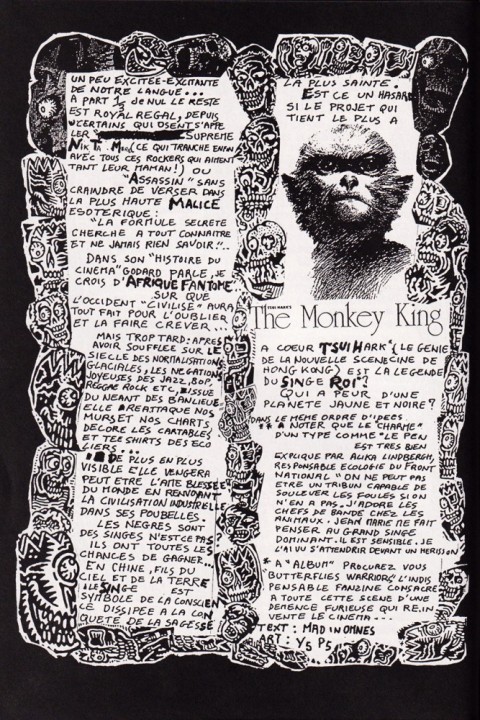 UN PEU EXCITEE-EXCITANTE
DE NOTRE LANGUE...
A PART ⅓ de NUL LE RESTE
EST ROYAL REGAL, DEPUIS
CERTAINS QUI OSENT S'APPE
LER SUPREME
NIK TA (CE QUI TRANCHE ENFIN
AVEC TOUS CES ROCKERS QUI AIMENT
TANT LEUR MAMAN!) OU
"ASSASSIN" SANS
CRAINDRE DE VERSER DANS
LA PLUS HAUTE MALICE
ESOTERIQUE:
"LA FORMULE SECRETE
CHERCHE A TOUT CONNAITRE
ET NE JAMAIS RIEN SAVOIR"...
DANS SON "HISTOIRE DU
CINEMA" GODARD PARLE, JE
CROIS D'AFRIQUE FANTOME.
SUR QUE
L'OCCIDENT "CIVILISE" AURA
TOUT FAIT POUR L'OUBLIER
ET LA FAIRE CREVER...
MAIS TROP TARD: APRES
AVOIR SOUFFLE SUR LE
SIECLE DES NORMALISATIONS
GLACIALES, LES NEGATIONS
JOYEUSES DES JAZZ, BOP,
REGGAE ROCK ETC, ISSUE
DU NEANT DES BANLIEUE
ELLE REATTAQUE NOS
MURS ET NOS CHARTS,
DECORE LES CARTABLES
ET TEE SHIRTS DES ECO
LIERS...
DE PLUS EN PLUS
VISIBLE ELLE VENGERA
PEUT ETRE L'AME BLESSEE
DU MONDE EN RENVOYANT
LA CIVILISATION INDUSTRIELLE
DANS SES POUBELLES.
LES NEGRES SONT
DES SINGES N'EST CE PAS?
ILS ONT TOUTES LES
CHANCES DE GAGNER...
EN CHINE, FILS DU
CIEL ET DE LA TERRE
LE SINGE EST
SYMBOLE DE LA CONSCIEN
CE DISSIPEE A LA CON
QUETE DE LA SAGESSE
LA PLUS SAINTE.
EST CE UN HASARD
SI LE PROJET QUI
TIENT LE PLUS A
TSUI HARK'S
The Monkey King
A COEUR TSUI HARK* (LE GENIE
DE LA NOUVELLE SCENE CINE DE
HONG KONG) EST LA LEGENDE
DU SINGE ROI?
QUI A PEUR D'UNE
PLANETE JAUNE ET NOIRE?
DANS LE MEME ORDRE D'IDEES
* A NOTER QUE LE "CHARME"
D'UN TYPE COMME "LE PEN
EST TRES BIEN
EXPLIQUE PAR ALIKA LINDBERGH,
RESPONSABLE ECOLOGIE DU FRONT
NATIONAL "ON NE PEUT PAS
ETRE UN TRIBUN CAPABLE DE
SOULEVER LES FOULES SI ON
N'EN A PAS. J'ADORE LES
CHEFS DE BANDE CHEZ LES
ANIMAUX. JEAN MARIE ME FAIT
PENSER AU GRAND SINGE
DOMINANT. IL EST SENSIBLE. JE
L'AI VU S'ATTENDRIR DEVANT UN HERISSON
* A "ALBUM" PROCUREZ VOUS
BUTTERFLIES WARRIORS, L'INDIS
PENSABLE FANZINE CONSACRE
A TOUTE CETTE SCENE D'UNE
DEMENCE FURIEUSE QUI RE.IN
VENTE LE CINEMA...
TEXT: MAD IN OMNES
ART: Y5 P5